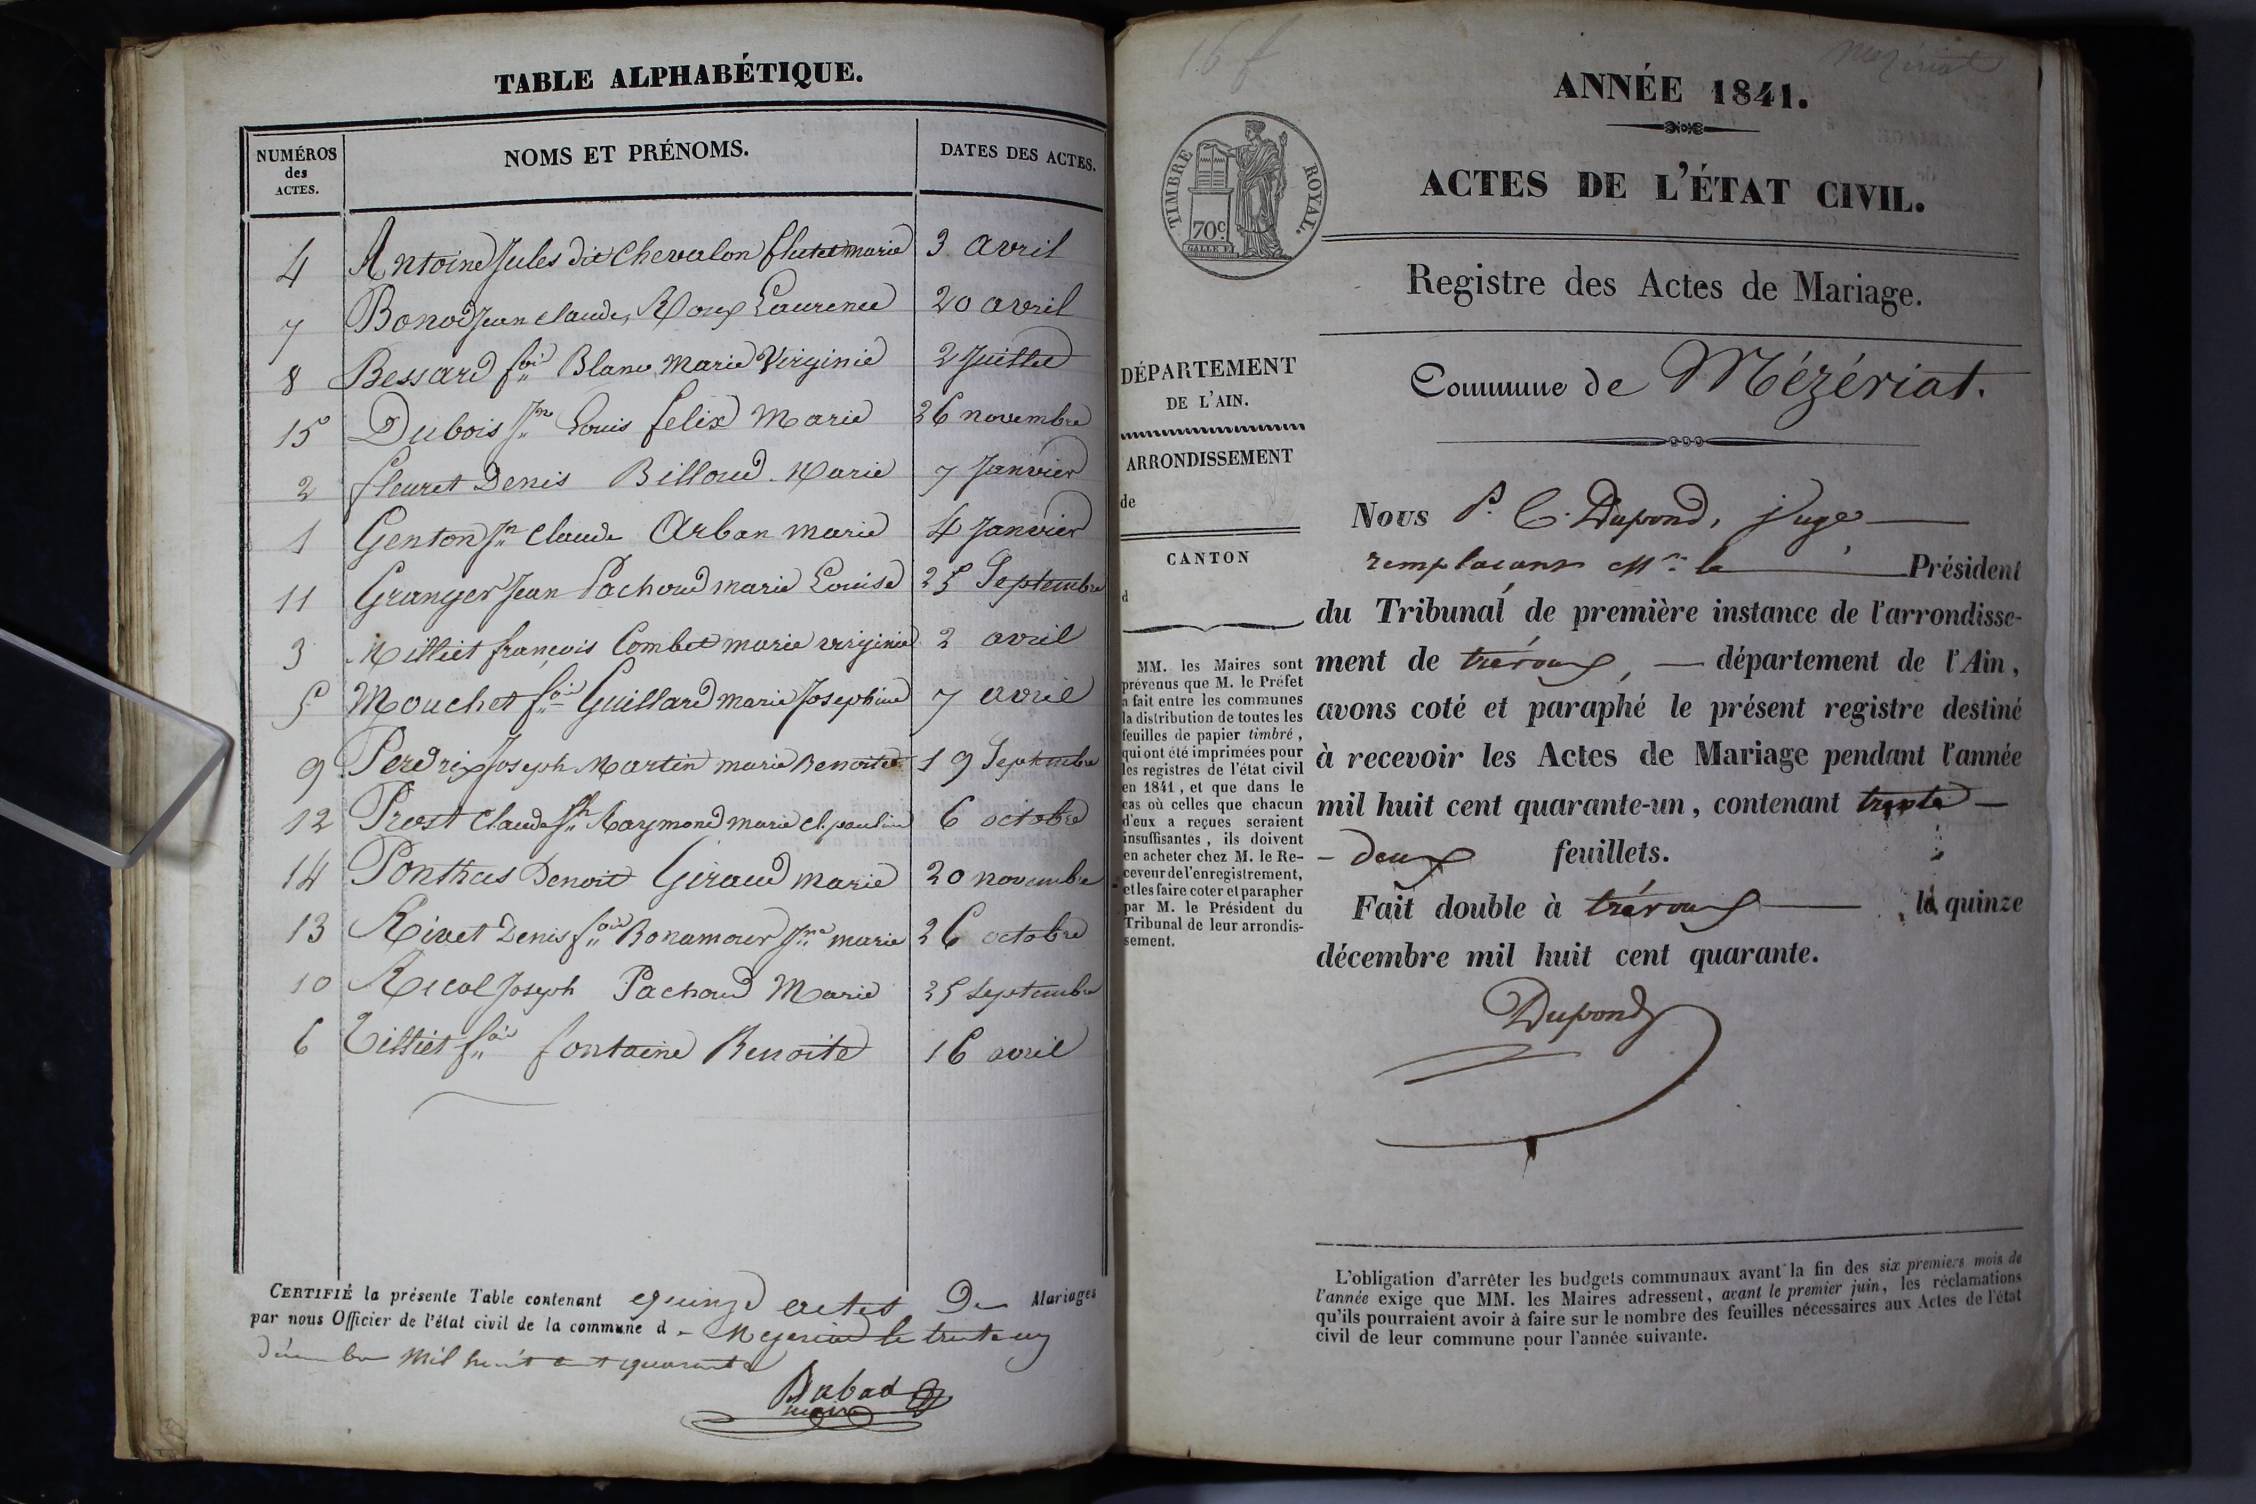 TABLE ALPHABÉTIQUE.
NUMÉROS des ACTES. NOMS ET PRÉNOMS. DATES DES ACTES.
4 Antoine Jules dit Chevalon flutet marie 3 avril
7 Bonod Jean claude, Roux Laurence 20 avril
8 Bessard f.ois Blanc Marie Virginie 2 Juillet
15 Dubois J.n Louis felix Marie 26 novembre
2 fleuret Denis Billoud Marie 7 Janvier
1 Genton J.n Claude Arban marie 4 Janvier
11 Granger Jean Pachoud marie Louise 25 Septembre
3 Milliet françois Combet marie virginie 2 avril
5 Mouchet f.ois Guillard marie Josephine 7 avril
9 Perdrix Joseph Martin marie Benoite 19 Septembre
12 Prost Claude J.h Raymond marie cl. pauline 6 octobre
14 Ponthus Benoit Giraud marie 20 novembre
13 Rivet Denis f.ois Bonamour J.ne marie 26 octobre
10 Ricol Joseph Pachoud Marie 25 Septembre
6 Tilliet f.ois fontaine Benoite 16 avril
CERTIFIÉ la présente Table contenant quinze actes De Mariages
par nous Officier de l'état civil de la commune d Mezeriat le trente un
décembre mil huit cent quarante
Babad
maire
16 f
Mezériat
ANNÉE 1841.
ACTES DE L'ÉTAT CIVIL.
TIMBRE ROYAL.
70c.
Registre des Actes de Mariage.
Commune de Mézériat.
DÉPARTEMENT
DE L'AIN.
ARRONDISSEMENT
de
CANTON
d
MM. les Maires sont
prévenus que M. le Préfet
a fait entre les communes
la distribution de toutes les
feuilles de papier timbré,
qui ont été imprimées pour
les registres de l'état civil
en 1841, et que dans le
cas où celles que chacun
d'eux a reçues seraient
insuffisantes, ils doivent
en acheter chez M. le Re-
ceveur de l'enregistrement,
et les faire coter et parapher
par M. le Président du
Tribunal de leur arrondis-
sement.
Nous P. C. Dupond, juge
remplaçant Mr. le Président
du Tribunal de première instance de l'arrondisse-
ment de trévoux, département de l'Ain,
avons coté et paraphé le présent registre destiné
à recevoir les Actes de Mariage pendant l'année
mil huit cent quarante-un, contenant trente
- deux feuillets.
Fait double à trévoux, le quinze
décembre mil huit cent quarante.
Dupond
L'obligation d'arrêter les budgets communaux avant la fin des six premiers mois de
l'année exige que MM. les Maires adressent, avant le premier juin, les réclamations
qu'ils pourraient avoir à faire sur le nombre des feuilles nécessaires aux Actes de l'état
civil de leur commune pour l'année suivante.